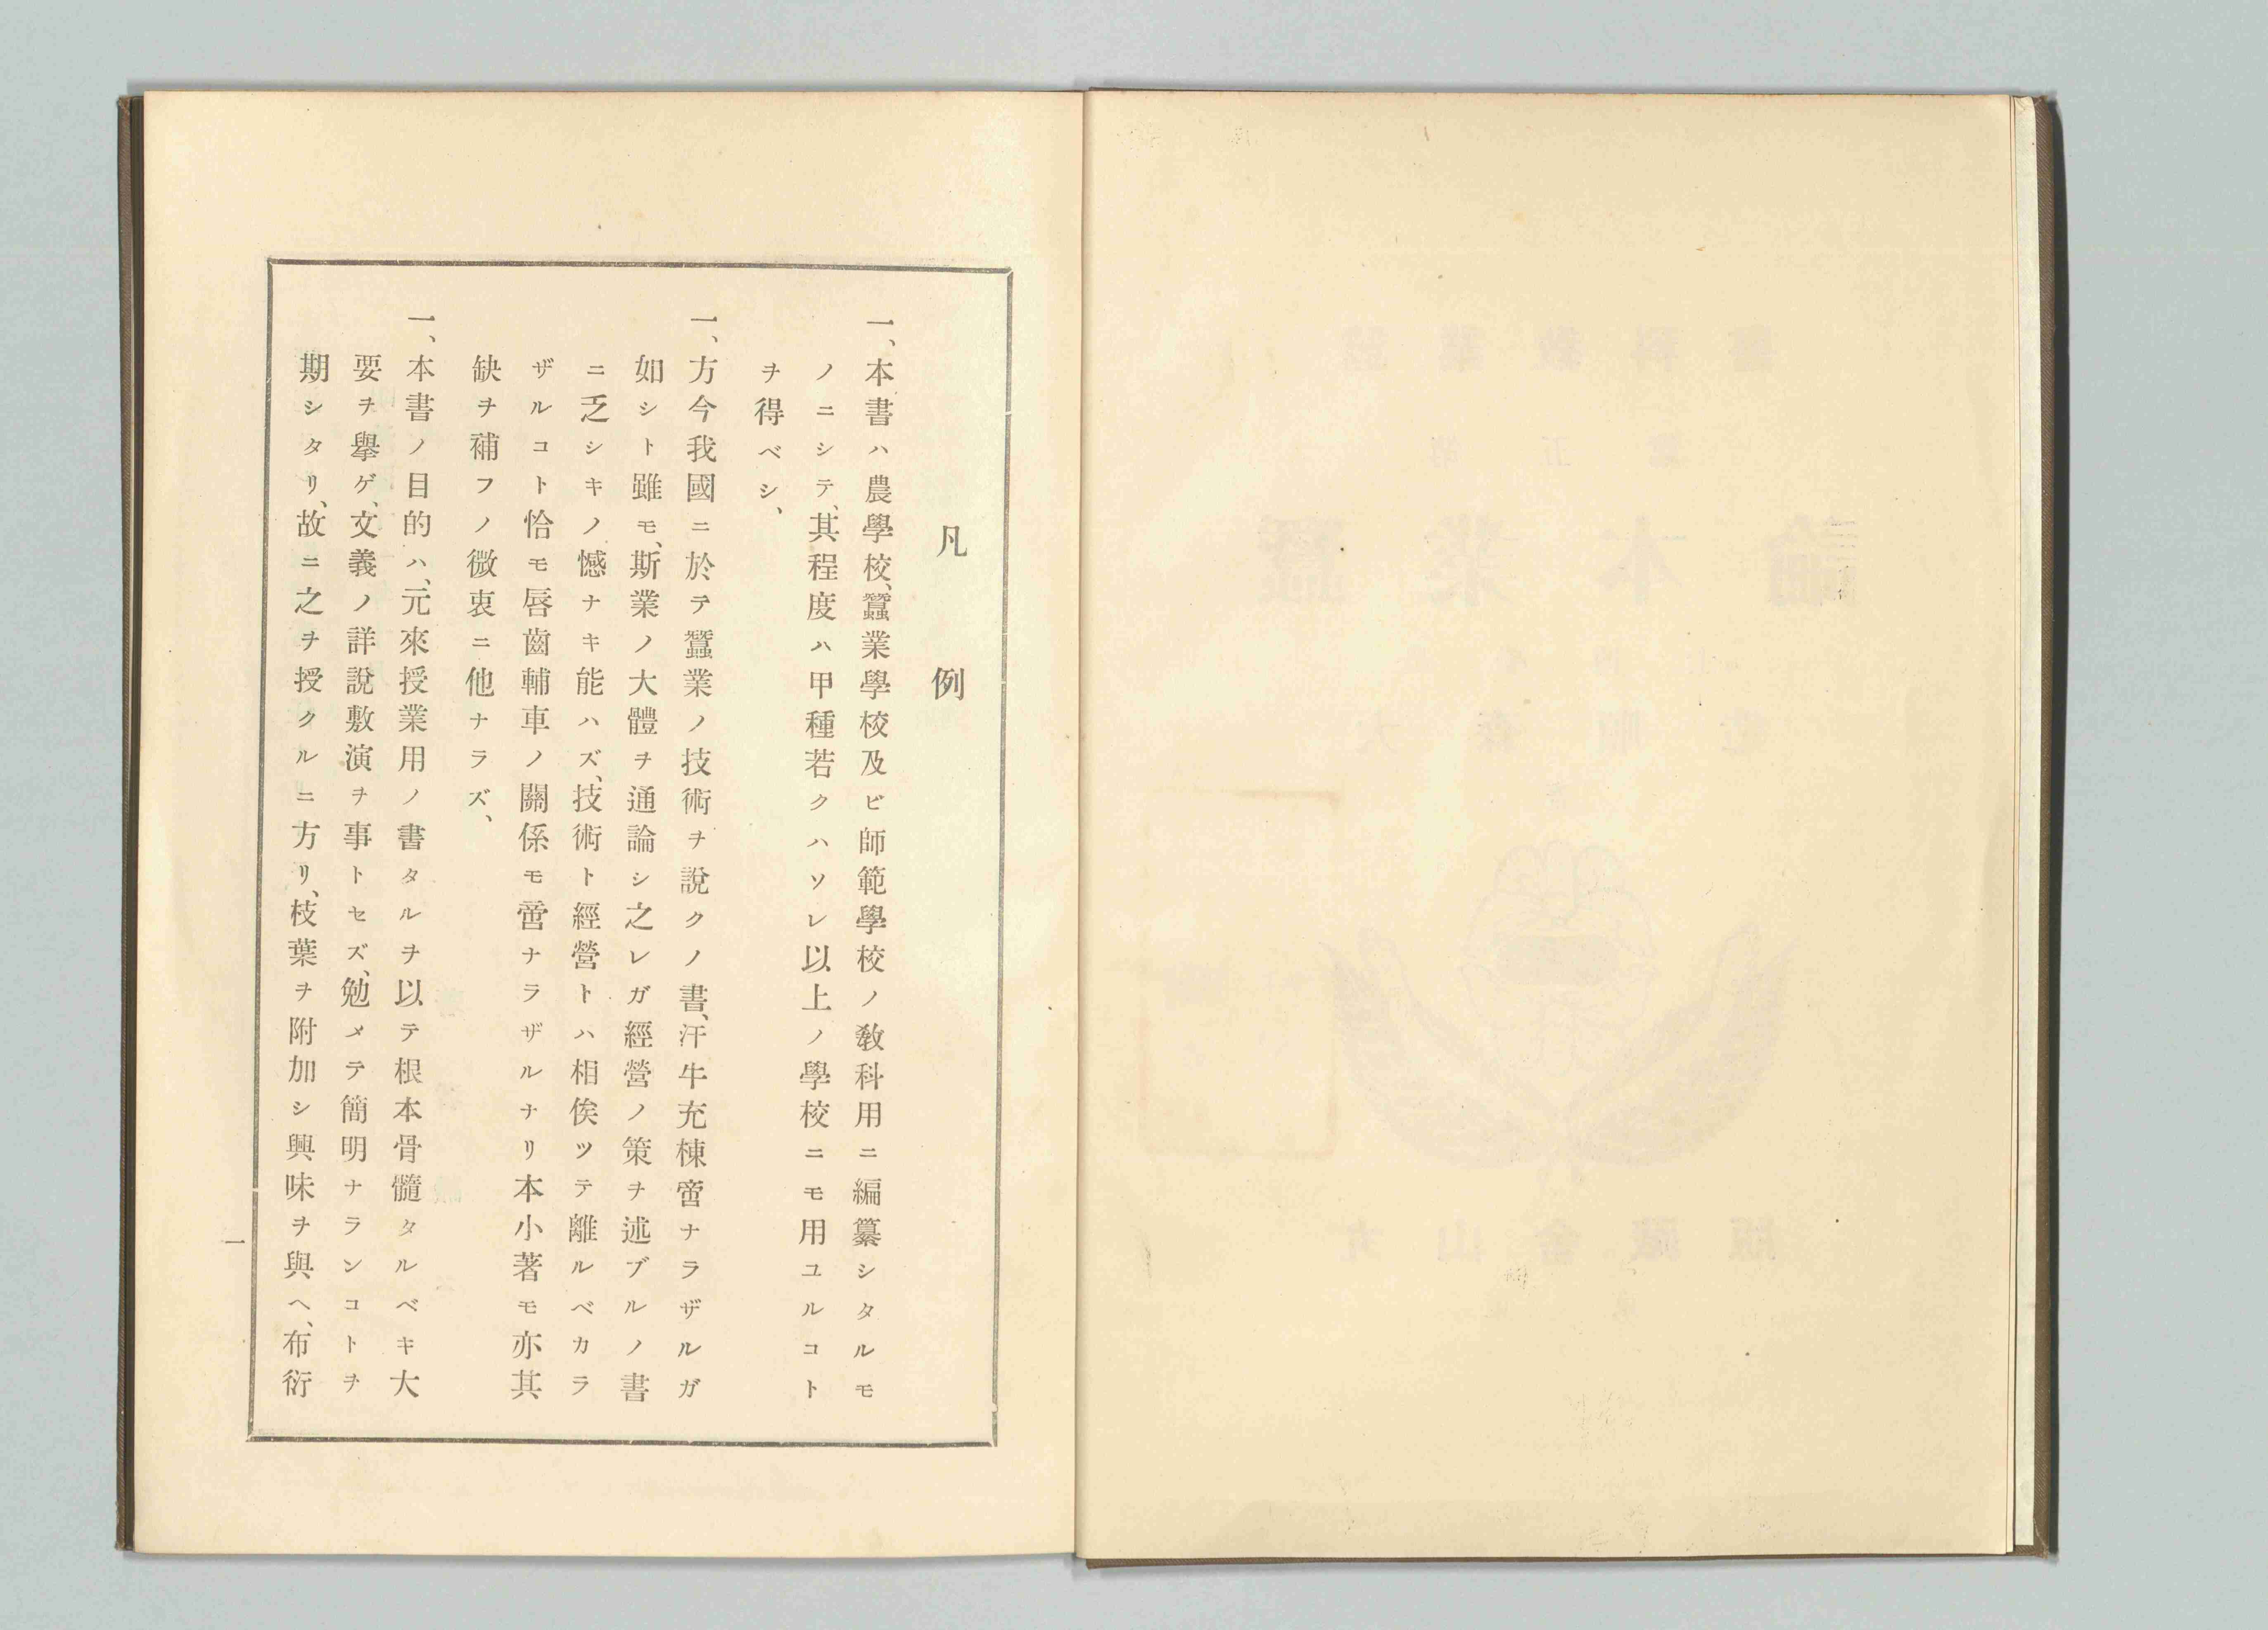 凡例
一、本書ハ農學校、蠶業學校及ビ師範學校ノ敎科用ニ編纂シタルモ
ノニシテ、其程度ハ甲種若クハソレ以上ノ學校ニモ用ユルコト
ヲ得ベシ、
一、方今我國ニ於テ蠶業ノ技術ヲ說クノ書、汗牛充棟啻ナラザルガ
如シト雖モ、斯業ノ大體ヲ通論シ之レガ經營ノ策ヲ述ブルノ書
ニ乏シキノ憾ナキ能ハズ、技術ト經營トハ相俟ツテ離ルベカラ
ザルコト恰モ唇齒輔車ノ關係モ啻ナラザルナリ本小著モ亦其
缺ヲ補フノ微衷ニ他ナラズ、
一、本書ノ目的ハ、元來授業用ノ書タルヲ以テ根本骨髓タルベキ大
要ヲ擧ゲ、文義ノ詳說敷演ヲ事トセズ、勉メテ簡明ナランコトヲ
期シタリ、故ニ之ヲ授クルニ方リ、枝葉ヲ附加シ興味ヲ與ヘ、布衍
一